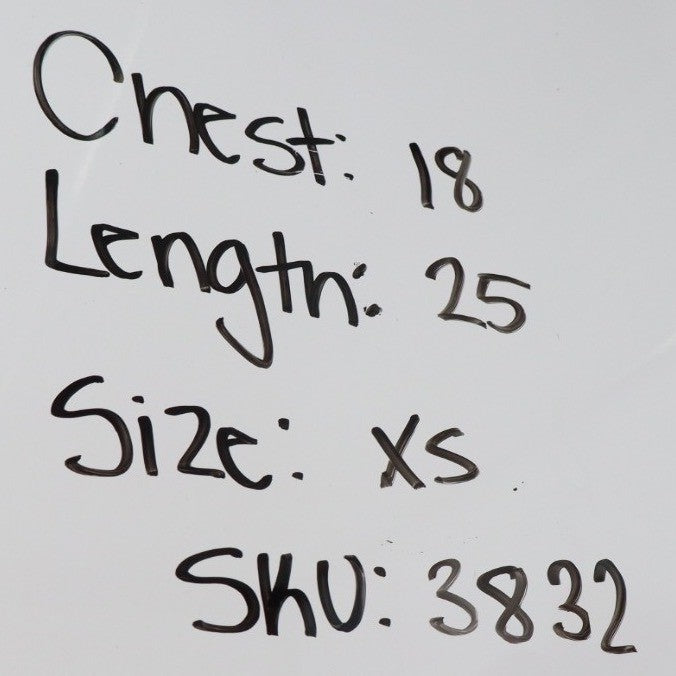 Chest: 18
Length: 25
Size: XS
SKU: 3832